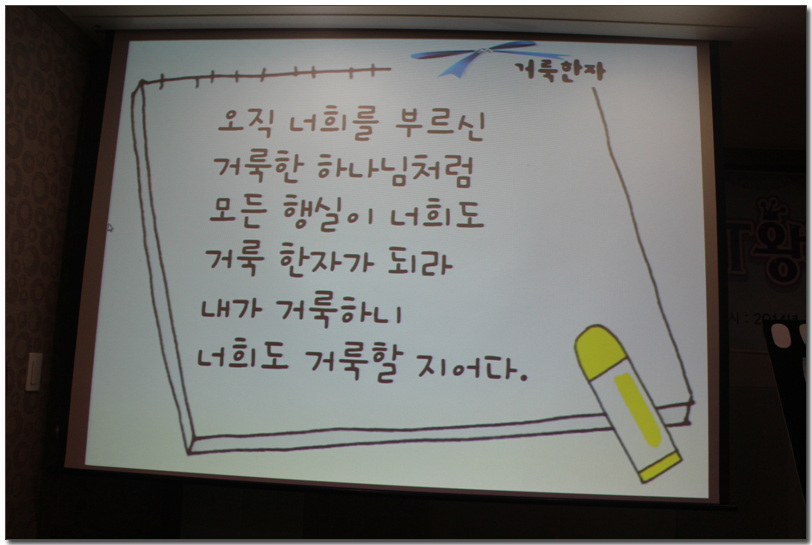 거룩한자
오직 너희를 부르신
거룩한 하나님처럼
모든 행실이 너희도
거룩 한자가 되라
내가 거룩하니
너희도 거룩할 지어다.
왕